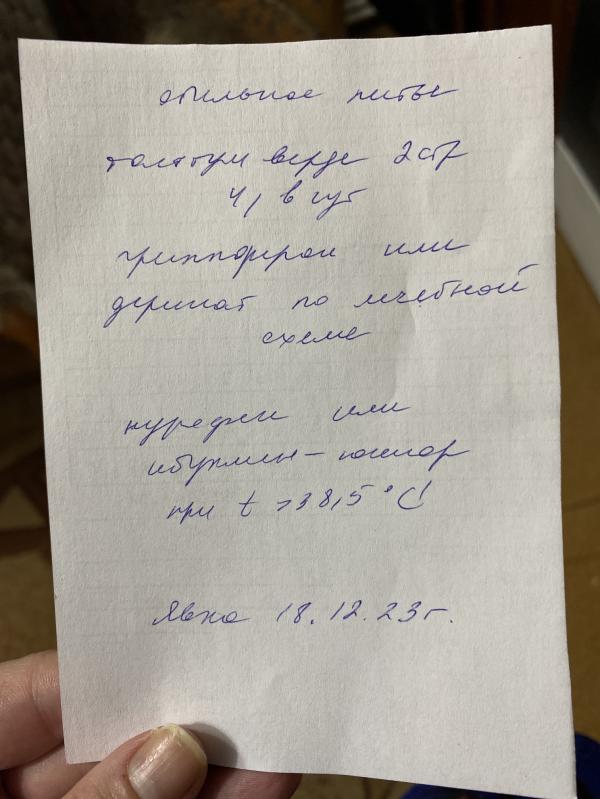 обильное питье
тантум верде 2 стр
4 р в сут
гриппферон или
деринат по лечебной
схеме
нурофен или
ибупмин-юниор
при t >38,5 °C!
Явка 18.12.23 г.